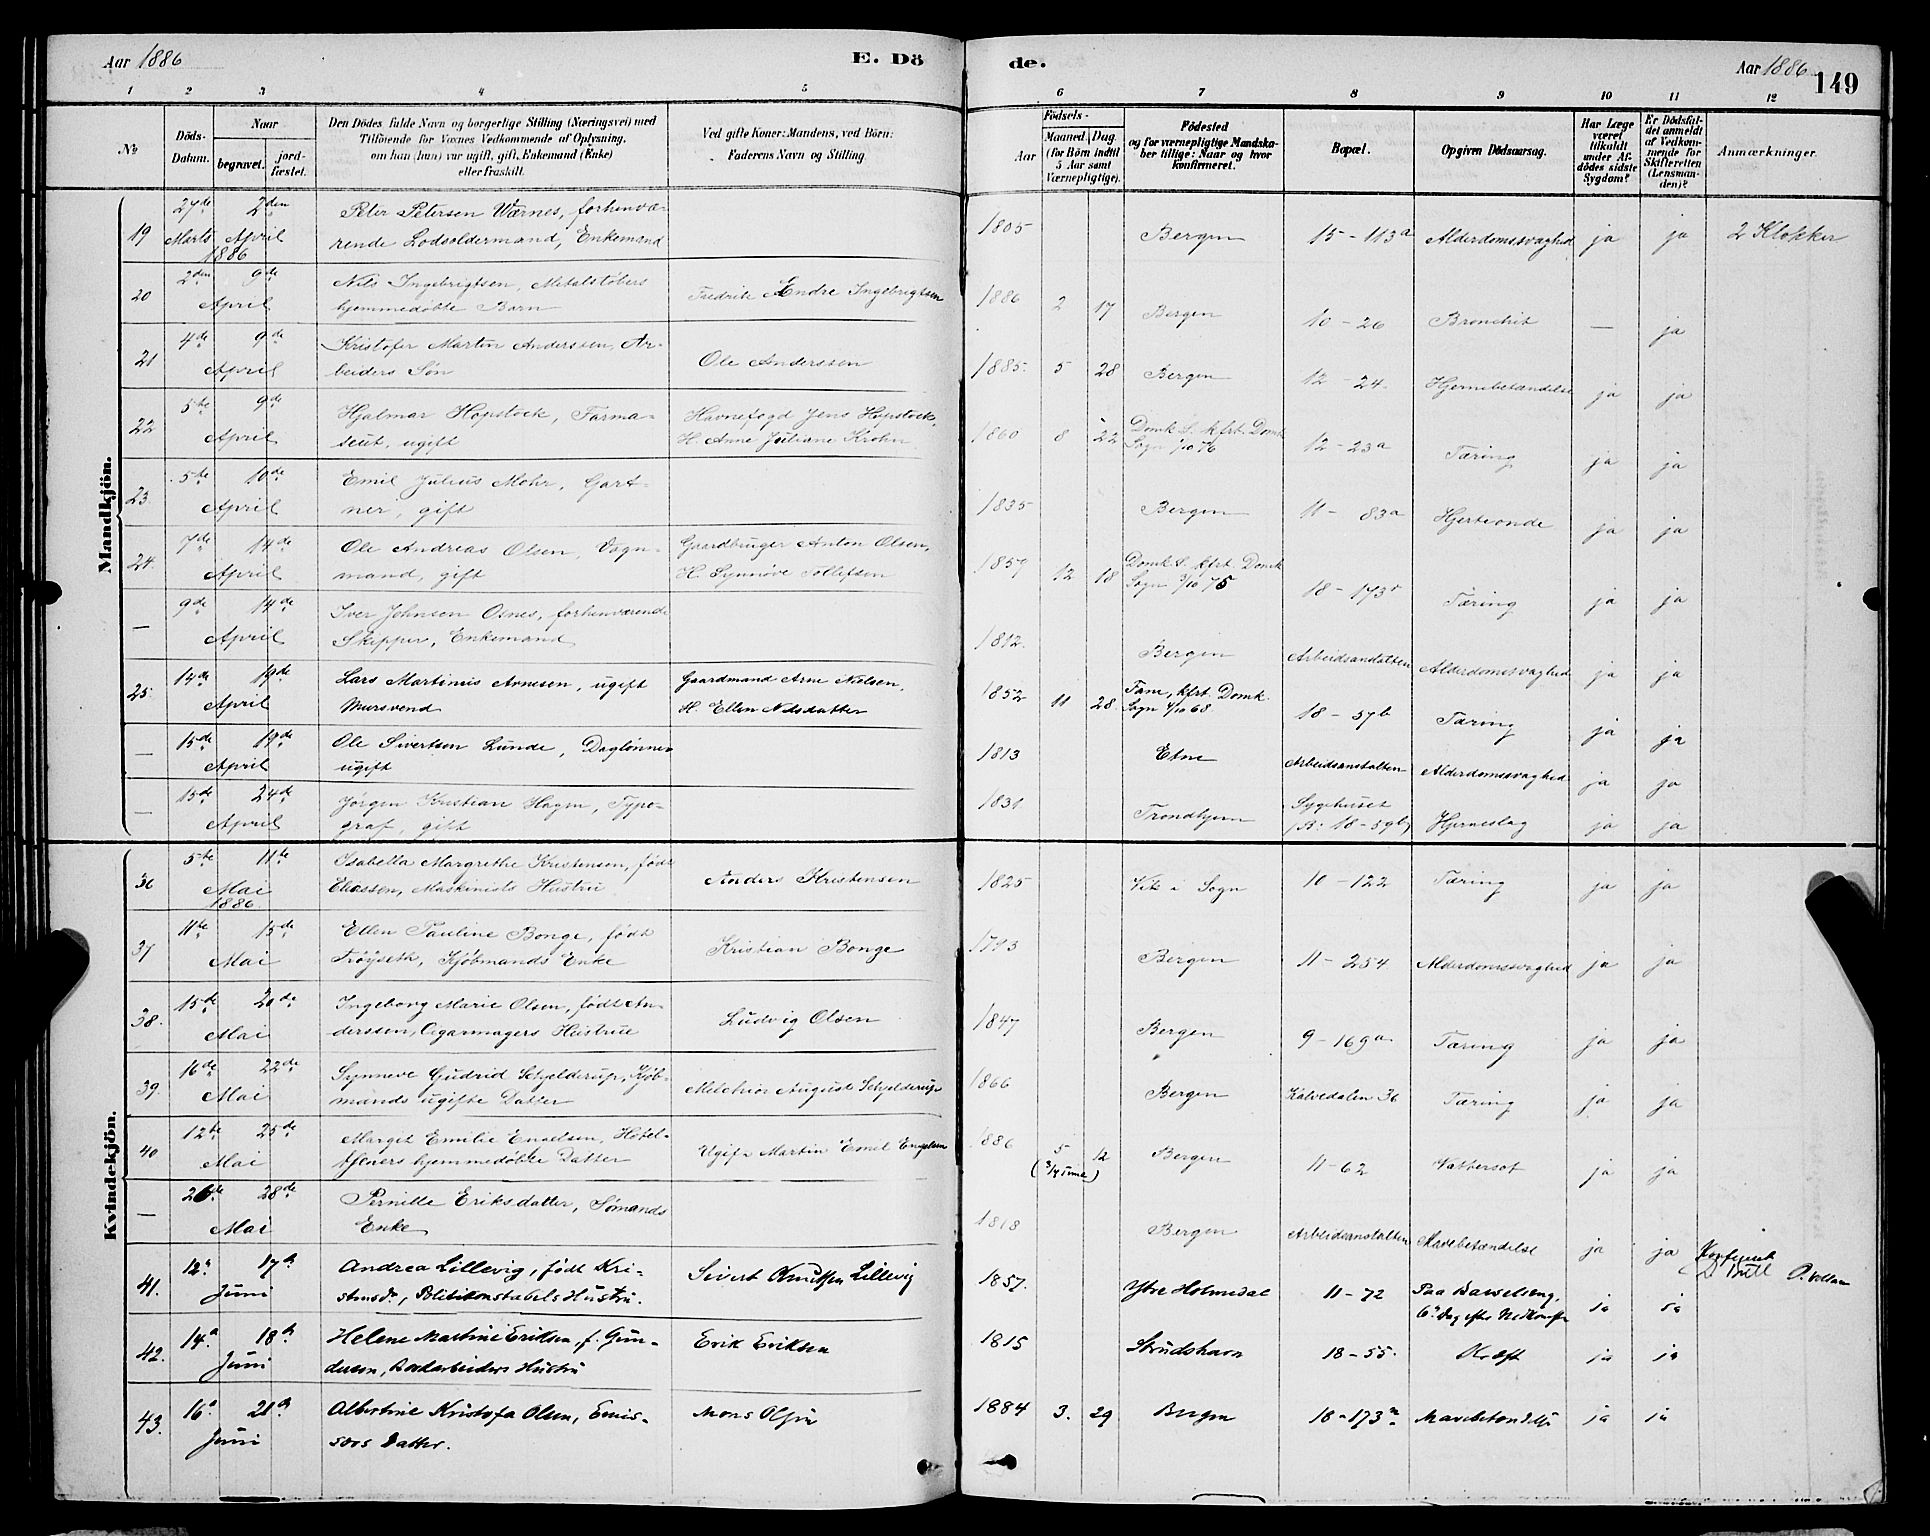 Aar 1886
E. Dö
de.
Aar 1886
149
1 2 3 4 5 6 7 8 9 10 11 12
№
Döds-Datum.
Naar
begravet.
jord-fæstet.
Den Dödes fulde Navn og borgerlige Stilling (Næringsvei) med
Tilföiende for Voxnes Vedkommende af Oplysning,
om han (hun) var ugift, gift, Enkemand (Enke)
eller fraskilt.
Ved gifte Koner: Mandens, ved Börn:
Faderens Navn og Stilling.
Födsels-
Aar
Maaned. Dag.
(for Börn indtil
5 Aar samt
Værnepligtige).
Födested
og for værnepligtige Mandska-
ber tillige: Naar og hvor
konfirmeret.
Bopæl.
Opgiven Dödsaarsag.
Har Læge
været
tilkaldt
under Af-
dödes sidste
Sygdom?
Er Dödsfal-
det anmeldt
af Vedkom-
mende for
Skifteretten
(Lensman-
den)?
Anmærkninger.
Mandkjön.
19 27de Marts 2den April 1886 Peter Petersen Wærnes, forhenvæ-
rende Lodsoldermand, Enkemand 1805 Bergen 15-113a Alderdomssvaghed ja ja 2 Klokker
20 2den 9de April Nils Ingebrigtsen, Metalstøbers
hjemmedøbte Barn Fredrik Andre Ingebrigtsen 1886 2 17 Bergen 10-26 Bronchit — ja
21 4de 9de April Kristofer Martin Anderssen, Ar-
beiders Søn Ole Anderssen 1885. 5 28 Bergen 12-24. Hjernebetændelse ja ja
22 5te 9de April Hjalmar Hopstock, Farma-
seut, ugift Havnefogd Jens Hopstock,
H. Anne Juliane Krohn 1860 8 22 Domk. S. kfrt. Domk.
Sogn 1/10 76 12-23a Tæring ja ja
23. 5te 10de April Emil Julius Mohr, Gart-
ner, gift 1835 Bergen 11-83a Hjerteonde ja ja
24. 7de 14de April Ole Andreas Olsen, Vogn-
mand, gift Gaardbruger Anton Olsen,
H. Synnøve Tollefsen 1857 12 18 Domk. S. kfrt. Domk.
Sogn 3/10 75 18-173 Tæring ja ja
— 9de 14de April Iver Johnsen Osnes, forhenværende
Skipper, Enkemand 1812. Bergen Arbeidsanstalten Alderdomssvaghed ja ja
25. 14de 19de April Lars Martinus Arnesen, ugift
Mursvend Gaardmand Arne Nielsen,
H. Ellen Nilsdatter 1852 11 28 Fane, kfrt. Domk.
Sogn 4/10 68. 18-57b Tæring ja ja
— 15de 19de April Ole Sivertsen Lunde, Daglønner
ugift 1813 Etne Arbeidsanstalten Alderdomssvaghed ja ja
— 15de 24de April Jørgen Kristian Hagen, Typo-
graf, gift 1831 Trondhjem Sygehuset
(B: 18-59b) Hjerneslag ja ja
Kvindekjön.
36 5te 11te Mai 1886 Isabella Margrethe Kristensen, født
Eliassen, Maskinists Hustru Anders Kristensen 1825 Vik i Sogn 10-122 Tæring ja ja
37 11te 15de Mai Ellen Pauline Bonge, født
Trøyseth, Kjøbmands Enke Kristian Bonge 1793 Bergen 11-254. Alderdomssvaghed ja ja
38. 15de 20de Mai Ingeborg Marie Olsen, født An-
derssen, Cigarmagers Hustrue Ludvig Olsen 1847 Bergen 9-169a. Tæring ja ja
39. 16de 22de Mai Synneve Gudrid Schjelderup, Kjøb-
mands ugifte Datter Melchior August Schjelderup 1866 Bergen Kalvedalen 36 Tæring ja ja
40 12te 25de Mai Margit Emilie Engelsen, Hotel-
tjeners hjemmedøbte Datter Ugift Martin Emil Engelsen 1886 5 12
(3/4 Time) Bergen 11-62 Nattersot ja ja
— 26de 28de Mai Pernille Eriksdatter, Sømands
Enke 1818 Bergen Arbeidsanstalten Mavebetændelse ja ja
41. 12 17 Juni Andrea Lillevig, født Kri-
stensdr., Politikonstabels Hustru. Sivert Knutsen Lillevig 1857. Ytre Holmedal 11-72 Paa Barselseng,
6 Dag efter Nedkomst ja ja
42. 14 18 Juni Helene Martine Eriksen, f. Gun-
dersen, Dokarbeiders Hustru Erik Eriksen 1815 Strudshavn 18-55. Kræft ja ja
43. 16 21 Juni Albertine Kristofa Olsen, Emis-
særs Datter. Mons Olsen 1884 3. 29 Bergen 18-173 Mavebetændelse ja ja